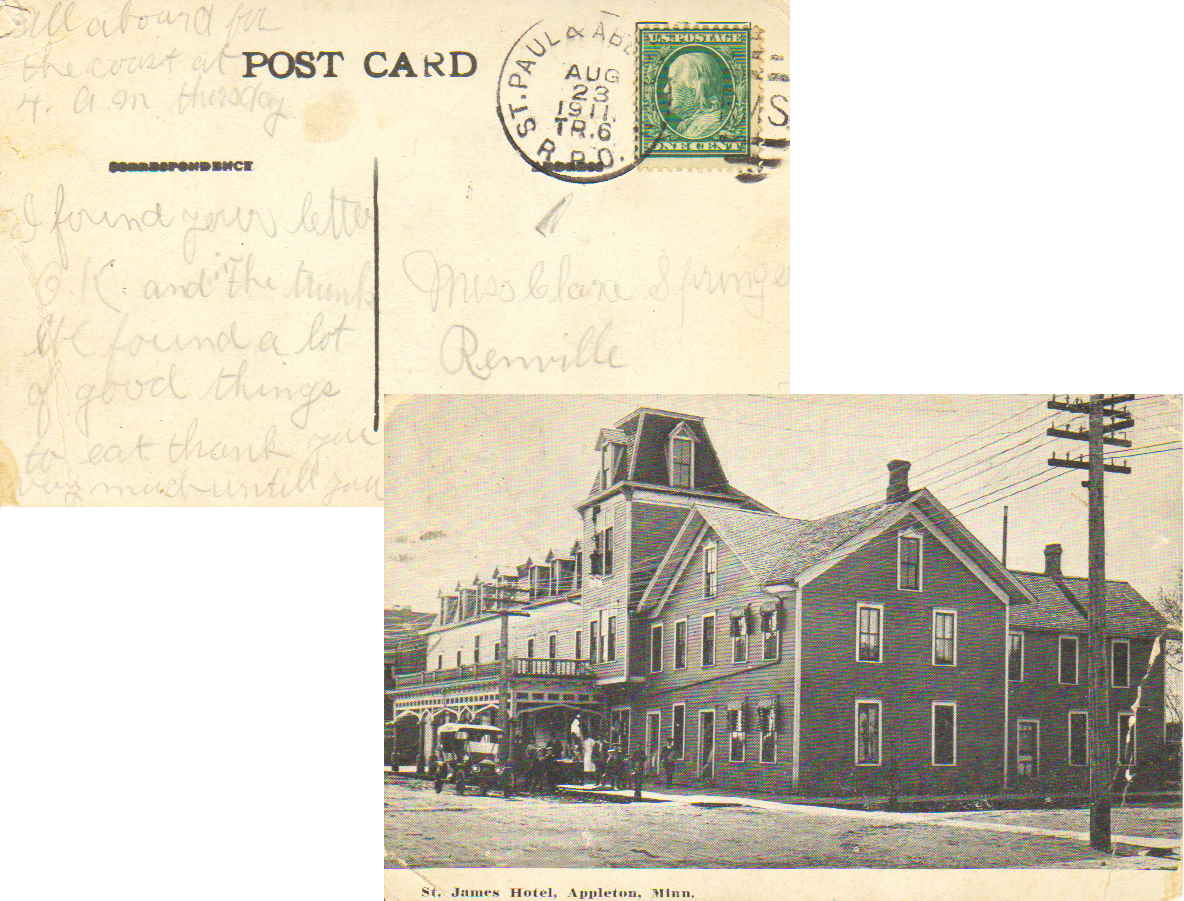 All aboard for
the coast at
4. a.m thursday
POST CARD
ST. PAUL & ABE
AUG
23
1911.
TR.6
R.P.O.
U.S. POSTAGE
ONE CENT
CORRESPONDENCE
I found your letter
O.K. and in the trunk
We found a lot
of good things
to eat thank you
very much untill you
Miss Clare Springe
Renville
St. James Hotel, Appleton, Minn.